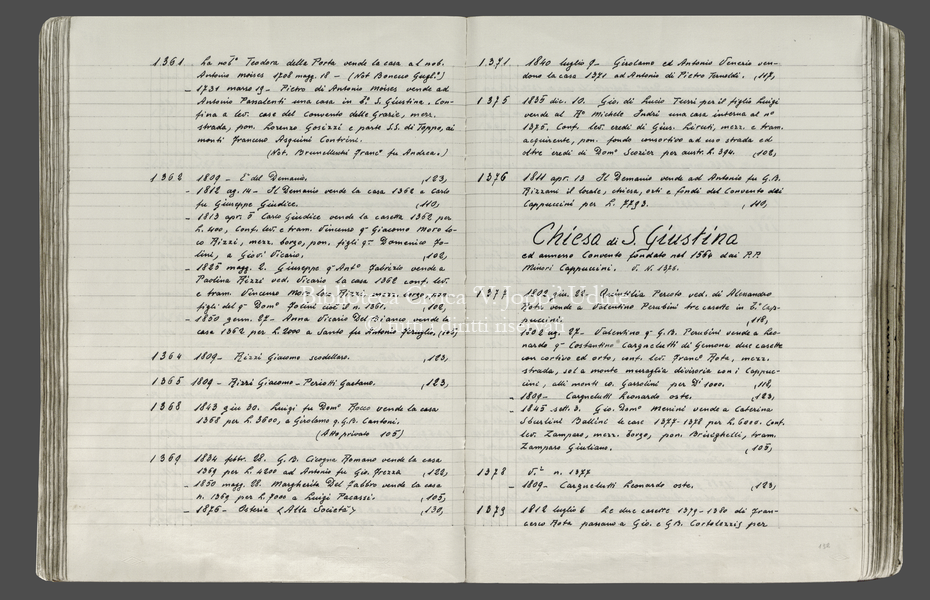 1361 La nobª Teodora della Porta vende la casa al nob.
Antonio Moises 1708 magg. 18 - (Not Boncuo Gugl.º)
- 1731 marzo 19 - Pietro di Antonio Moises vende ad
Antonio Passalenti una casa in Cª. S. Giustina. Con-
fina a lev. case del Convento delle Grazie, merr.
strada, pon. Lorenzo Gosizzi e parte S.S. di Toppo, ai
monti Francesco Asquini Contrini.
(Not. Brunelleschi Francº fu Andrea.)
1362 1809 - Eª del Demanio. (123,
- 1812 ag. 14 - Il Demanio vende la casa 1362 a Carlo
fu Giuseppe Giudice. (110,
- 1813 apr. 5 Carlo Giudice vende la casetta 1362 per
L. 400, Conf. lev. e tram. Vincenzo qm Giacomo Moro lo-
co Rizzi, merz. borgo, pon. figli qm Domenico Fo-
lini, a Giov. Vicario. (102,
- 1825 magg. 2. Giuseppe q. Antº Fabrizio vende a
Paolina Rizzi ved. Vicario la casa 1362 conf. lev.
e tram. Vincenzo Moro loco Rizzi, merz. borgo, pon.
figli del qm Domº Folini (102,
- 1850 genn. 27 - Anna Vicario Del Bianco vende la
casa 1362 per L. 2000 a Santo fu Antonio (105)
1364 1809 - Rizzi Giacomo scodellaro. (123,
1365 1809 - Rizzi Giacomo - Periotti Gaetano. (123,
1368 1843 giu 30. Luigi fu Domº Rocco vende la casa
1368 per L. 3600, a Girolamo q. G.B. Cantoni.
(Atto privato 105)
1369 1834 febbr. 28. G.B. Cicogna Romano vende la casa
1369 per L. 4200 ad Antonio fu Gio. Frezza (122,
- 1850 magg. 28. Margherita Del Fabbro vende la casa
n. 1369 per L. 7000 a Luigi Pacassi. (105,
- 1876 - Osteria <Alla Società> (130,
1371 1840 luglio 9 - Girolamo ed Antonio Venerio ven-
dono la casa 1371 ad Antonio di Pietro Tomaldi. (117,
1375 1835 dic. 10. Gio. di Lucio Turri per il figlio Luigi
vende al Rº Michele Indri una casa interna al nº
1375. Conf. lev. eredi di Gius. Liruti, mezz. e tram.
acquirente, pon. fondo consortivo ad uso strada ed
oltre eredi di Domº Scozier per austr. L. 394. (102,
1376 1811 apr. 13 Il Demanio vende ad Antonio fu G.B.
Rizzani il locale, chiesa, orti e fondi del Convento dei
Cappuccini per L. 7793. (110,
Chiesa di S. Giustina
ed annesso Convento fondato nel 1560 dai P.P.
Minori Cappuccini. V. N. 1376.
1377 1802 giu. 22. Quintilia Percoto ved. di Alessandro
vende a Valentino Perubini tre casette in Cª. Cap-
puccini. (118,
1802 ag. 27 - Valentino q. G.B. Parubini vende a Leo-
nardo qm Costantino Cargnelutti di Gemona due casette
con cortivo ed orto, conf. lev. Francº Rota, mezz.
strada, sol a monte muraglia divisoria con i Cappuc-
cini, alli monti co. Gassolini per Dⁱ 1000. (118,
- 1809 - Cargnelutti Leonardo oste. (123,
- 1845 sett. 3. Gio. Domº Menini vende a Caterina
Sburlini Ballini le case 1377-1378 per L. 6000. Conf.
lev. Zamparo, merz. borgo, pon. Brisighelli, tram.
Zamparo Giuliano. (105,
1378 V.ⁱ n. 1377
- 1809 - Cargnelutti Leonardo oste. (123,
1379 1812 luglio 6 Le due casette 1379-1380 di Fran-
cesco Rota passano a Gio. e G.B. Cortolezzis per
136
Biblioteca Civica V. Joppi - Udine
tutti i diritti riservati